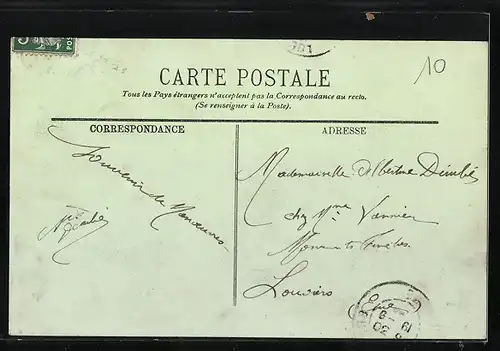 10
CARTE POSTALE
Tous les Pays étrangers n'acceptent pas la Correspondance au recto.
(Se renseigner à la Poste).
CORRESPONDANCE
Souvenir de Manœuvres
ADRESSE
Mademoiselle Albertine
chez Mme Vannier
Monuments Funèbres
Louviers
(Eure)